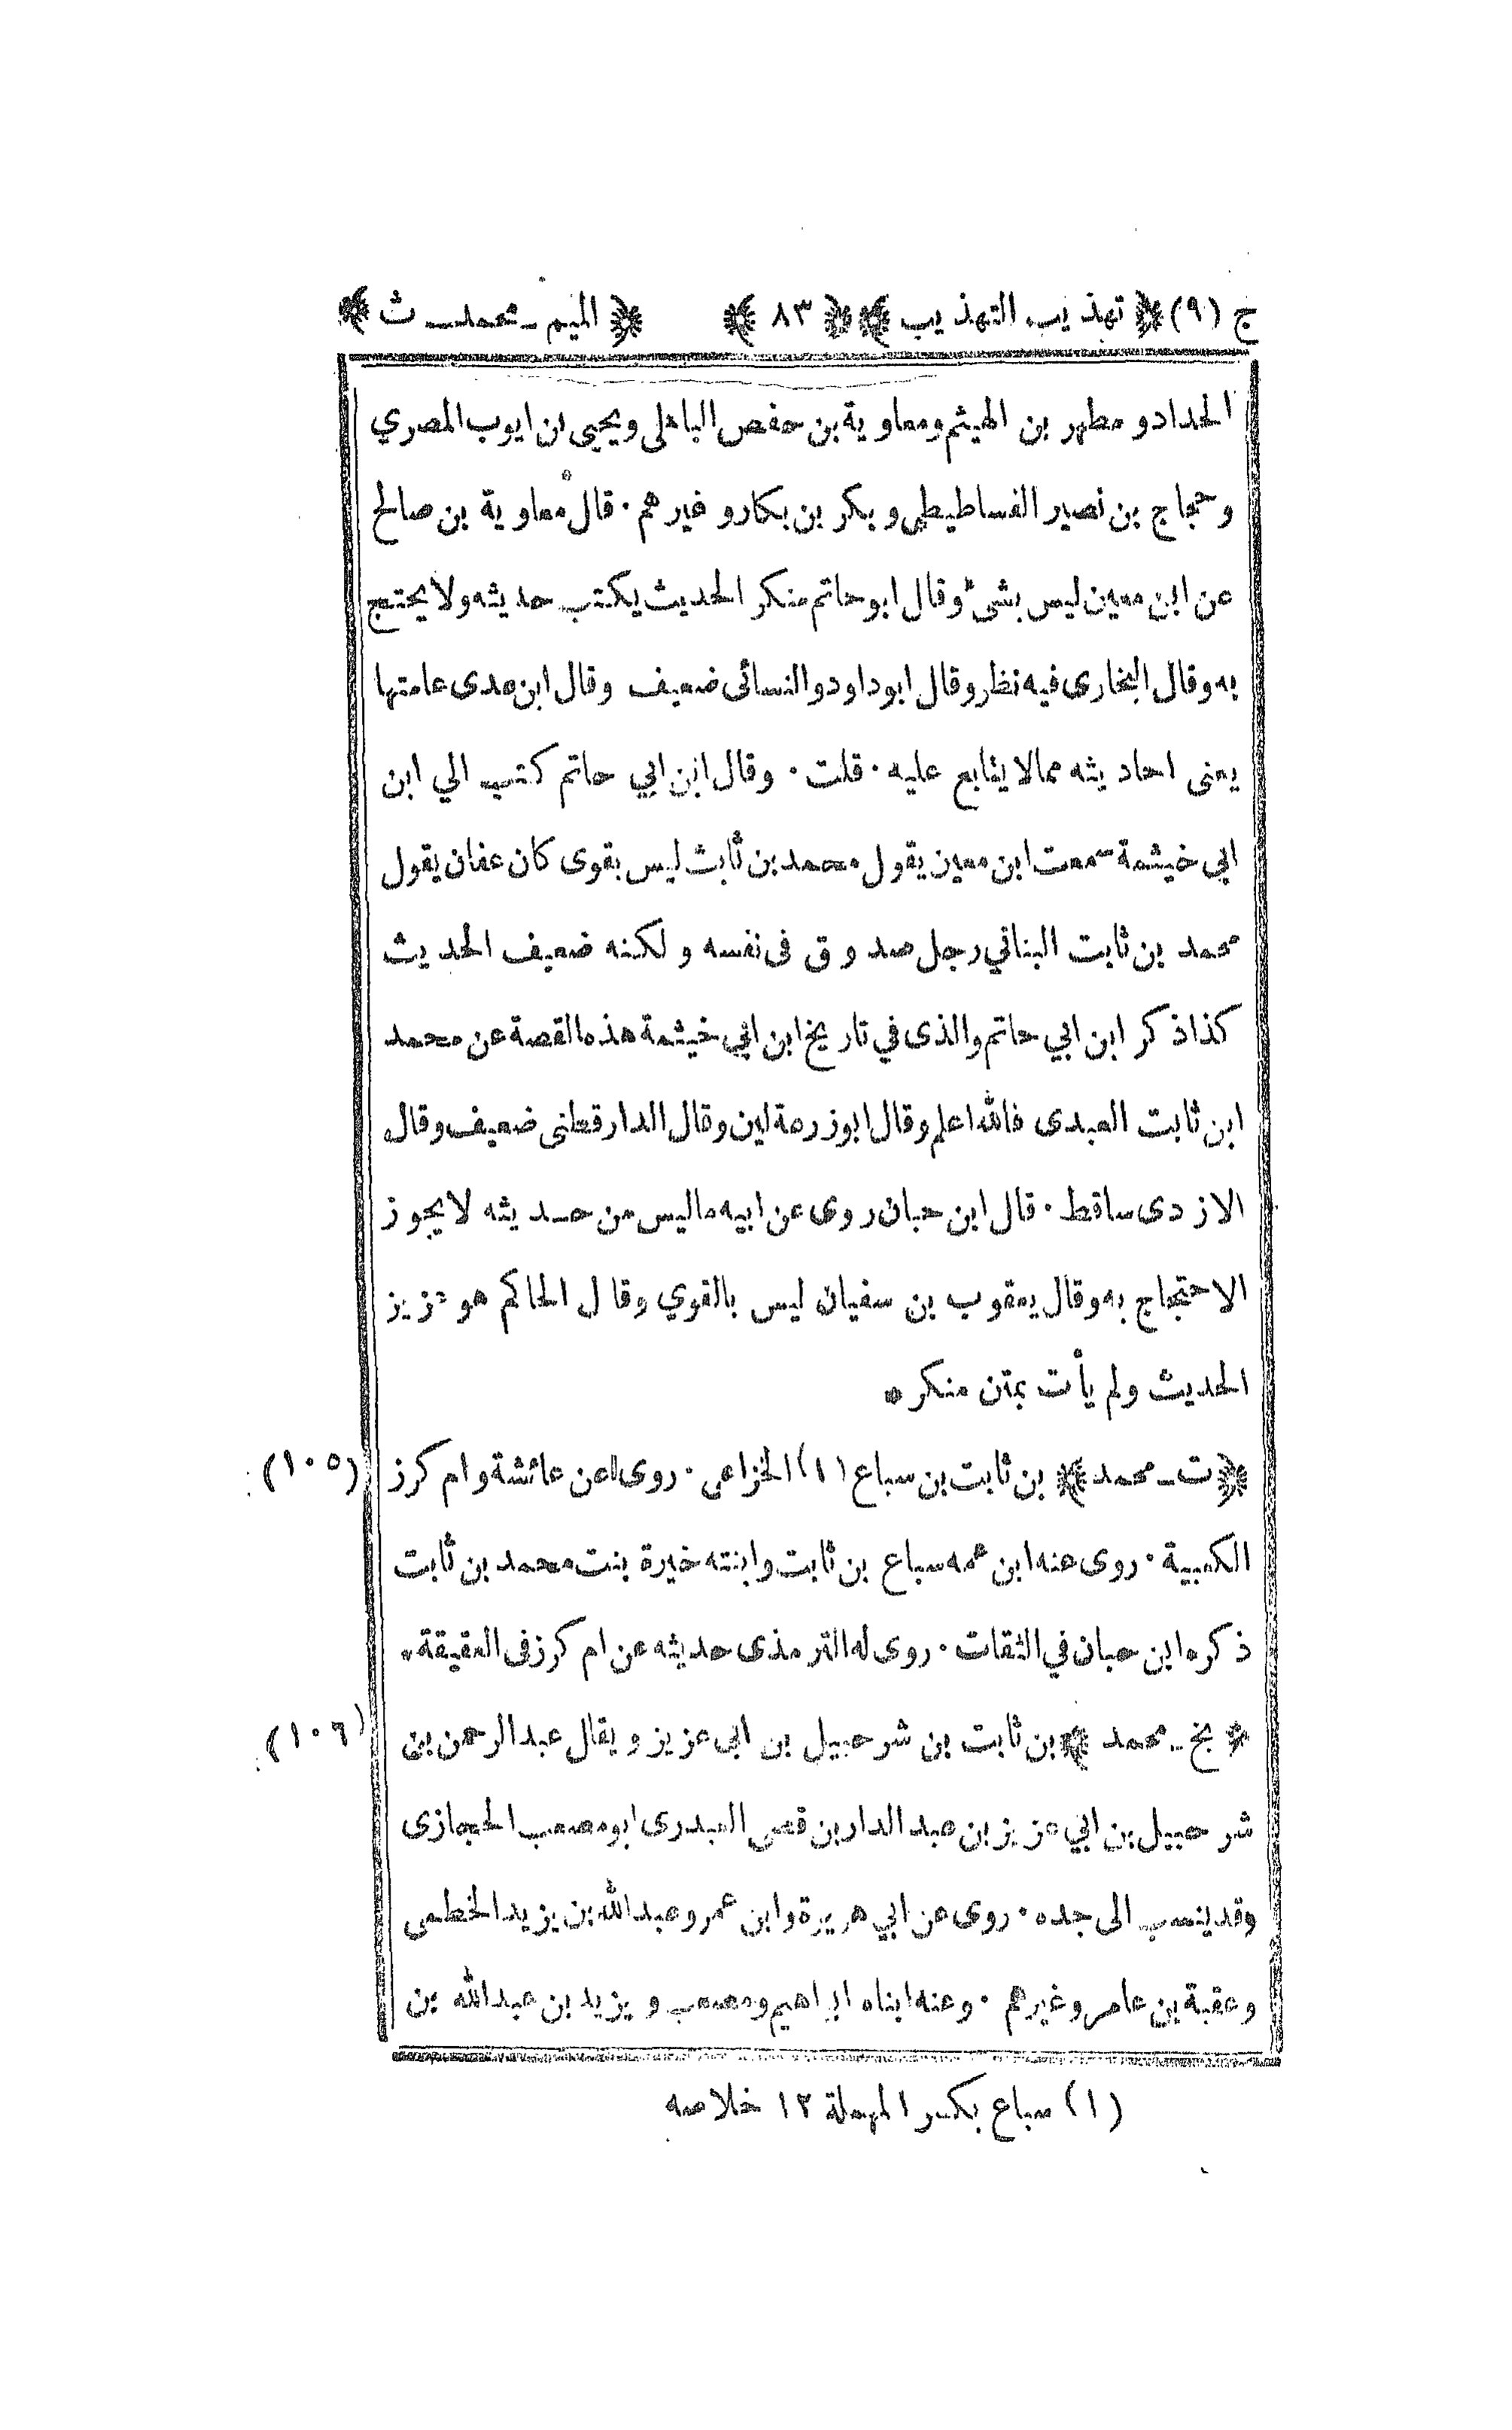 ج (٩) ﴿ تهذيب التهذيب ﴾ ﴿ ٨٣ ﴾ ﴿ الميم - محمد - ث ﴾
الحداد و مطهر بن الهيثم ومعاوية بن حفص الباهلى ويحيى بن ايوب المصري
وحجاج بن نصير الفساطيطي و بكر بن بكار و غيرهم · قال معاوية بن صالح
عن ابن معين ليس بشئ وقال ابو حاتم منكر الحديث يكتب حديثه ولا يحتج
به وقال البخارى فيه نظر وقال ابو داود والنسائى ضعيف وقال ابن عدى عامتها
يعنى احاديثه مما لا يتابع عليه · قلت · وقال ابن ابي حاتم كتب الي ابن
ابي خيثمة سمعت ابن معين يقول محمد بن ثابت ليس بقوى كان عفان يقول
محمد بن ثابت البناني رجل صدوق فى نفسه و لكنه ضعيف الحديث
كذا ذكر ابن ابي حاتم والذى في تاريخ ابن ابي خيثمة هذه القصة عن محمد
ابن ثابت العبدى فالله اعلم وقال ابو زرعة لين وقال الدارقطنى ضعيف وقال
الازدى ساقط · قال ابن حبان روى عن ابيه ما ليس من حديثه لا يجوز
الاحتجاج به وقال يعقوب بن سفيان ليس بالقوي وقال الحاكم هو عزيز
الحديث ولم يأت بمتن منكر ٥
﴿ ت - محمد ﴾ بن ثابت بن سباع (١) الخزاعى · روى عن عائشة وام كرز (١٠٥)
الكعبية · روى عنه ابن عمه سباع بن ثابت وابنته خيرة بنت محمد بن ثابت
ذكره ابن حبان في الثقات · روى له الترمذى حديثه عن ام كرز فى العقيقة ·
﴿ بخ - محمد ﴾ بن ثابت بن شرحبيل بن ابى عزيز و يقال عبد الرحمن بن (١٠٦)
شرحبيل بن ابي عزيز بن عبد الدار بن قصى العبدرى ابو مصعب الحجازى
وقد ينسب الى جده · روى عن ابي هريرة وابن عمر وعبد الله بن يزيد الخطمى
وعقبة بن عامر وغيرهم · وعنه ابناه ابراهيم ومصعب و يزيد بن عبد الله بن
(١) سباع بكسر المهملة ١٢ خلاصه